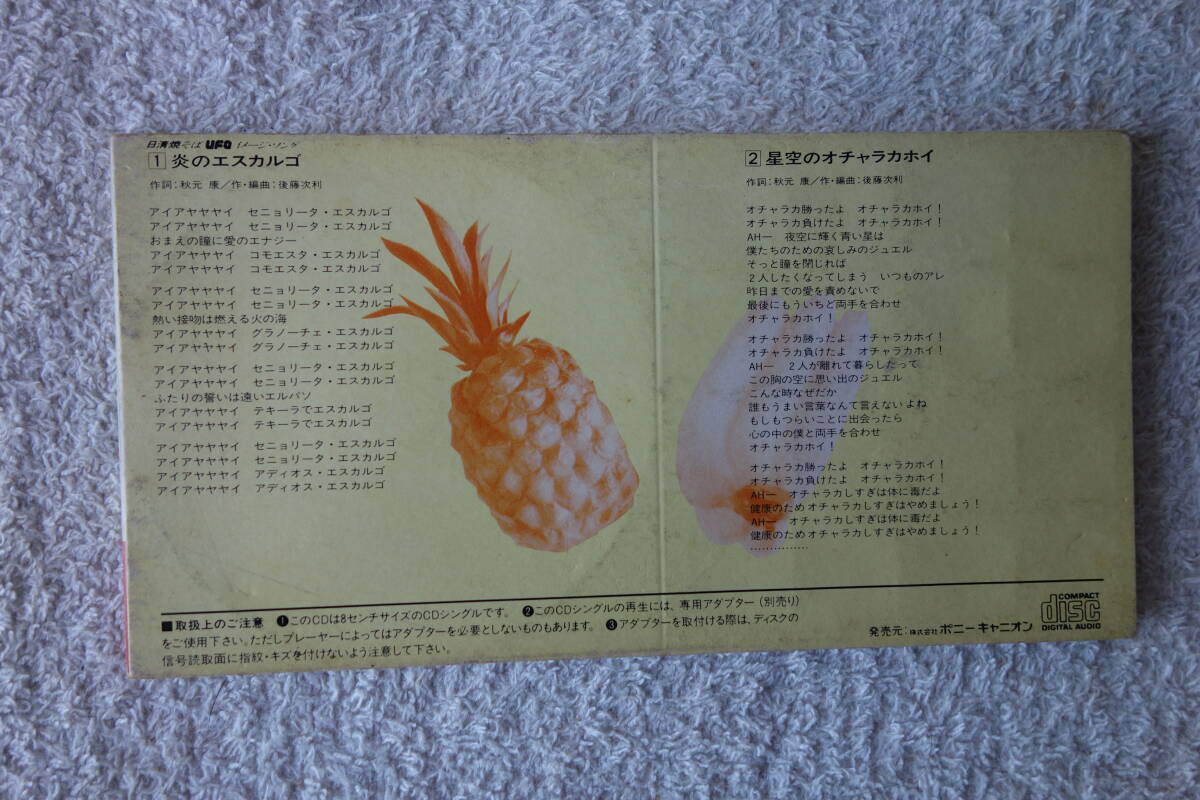 日清焼そば UFO イメージ・ソング
1 炎のエスカルゴ
作詞：秋元 康／作・編曲：後藤次利
アイアヤヤヤイ セニョリータ・エスカルゴ
アイアヤヤヤイ セニョリータ・エスカルゴ
おまえの瞳に愛のエナジー
アイアヤヤヤイ コモエスタ・エスカルゴ
アイアヤヤヤイ コモエスタ・エスカルゴ
アイアヤヤヤイ セニョリータ・エスカルゴ
アイアヤヤヤイ セニョリータ・エスカルゴ
熱い接吻は燃える火の海
アイアヤヤヤイ グラノーチェ・エスカルゴ
アイアヤヤヤイ グラノーチェ・エスカルゴ
アイアヤヤヤイ セニョリータ・エスカルゴ
アイアヤヤヤイ セニョリータ・エスカルゴ
ふたりの誓いは遠いエルパソ
アイアヤヤヤイ テキーラでエスカルゴ
アイアヤヤヤイ テキーラでエスカルゴ
アイアヤヤヤイ セニョリータ・エスカルゴ
アイアヤヤヤイ セニョリータ・エスカルゴ
アイアヤヤヤイ アディオス・エスカルゴ
アイアヤヤヤイ アディオス・エスカルゴ
2 星空のオチャラカホイ
作詞：秋元 康／作・編曲：後藤次利
オチャラカ勝ったよ オチャラカホイ！
オチャラカ負けたよ オチャラカホイ！
AH— 夜空に輝く青い星は
僕たちのための哀しみのジュエル
そっと瞳を閉じれば
２人したくなってしまう いつものアレ
昨日までの愛を責めないで
最後にもういちど両手を合わせ
オチャラカホイ！
オチャラカ勝ったよ オチャラカホイ！
オチャラカ負けたよ オチャラカホイ！
AH— ２人が離れて暮らしたって
この胸の空に思い出のジュエル
こんな時なぜだか
誰もうまい言葉なんて言えないよね
もしもつらいことに出会ったら
心の中の僕と両手を合わせ
オチャラカホイ！
オチャラカ勝ったよ オチャラカホイ！
オチャラカ負けたよ オチャラカホイ！
AH— オチャラカしすぎは体に毒だよ
健康のためオチャラカしすぎはやめましょう！
AH— オチャラカしすぎは体に毒だよ
健康のためオチャラカしすぎはやめましょう！
……………
■取扱上のご注意 ❶このCDは8センチサイズのCDシングルです。 ❷このCDシングルの再生には、専用アダプター（別売り）
をご使用下さい。ただしプレーヤーによってはアダプターを必要としないものもあります。 ❸アダプターを取付ける際は、ディスクの
信号読取面に指紋・キズを付けないよう注意して下さい。
発売元：株式会社ポニーキャニオン
COMPACT
disc
DIGITAL AUDIO